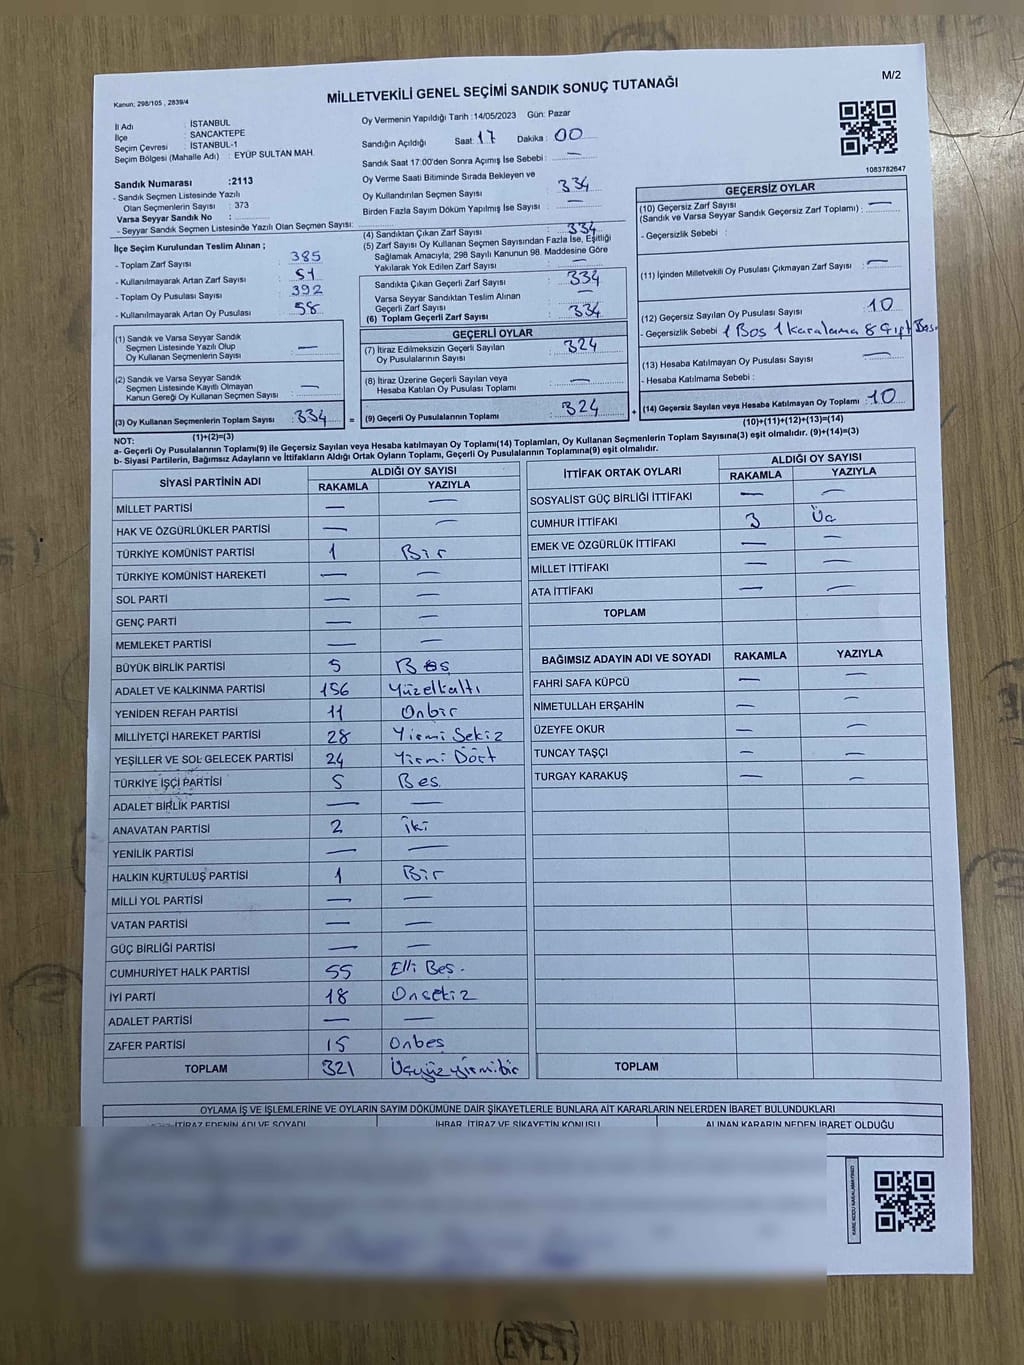 M/2
Kanun; 298/105 , 2839/4
MİLLETVEKİLİ GENEL SEÇİMİ SANDIK SONUÇ TUTANAĞI
İl Adı : İSTANBUL
İlçe : SANCAKTEPE
Seçim Çevresi : İSTANBUL-1
Seçim Bölgesi (Mahalle Adı) : EYÜP SULTAN MAH.
Oy Vermenin Yapıldığı Tarih :14/05/2023 Gün: Pazar
Sandığın Açıldığı Saat: 17 Dakika : 00
Sandık Saat 17:00'den Sonra Açımış İse Sebebi : —
Oy Verme Saati Bitiminde Sırada Bekleyen ve
Oy Kullandırılan Seçmen Sayısı : 334
Birden Fazla Sayım Döküm Yapılmış İse Sayısı : —
Sandık Numarası :2113
- Sandık Seçmen Listesinde Yazılı
Olan Seçmenlerin Sayısı : 373
Varsa Seyyar Sandık No :
- Seyyar Sandık Seçmen Listesinde Yazılı Olan Seçmen Sayısı:
İlçe Seçim Kurulundan Teslim Alınan ;
- Toplam Zarf Sayısı : 385
- Kullanılmayarak Artan Zarf Sayısı : 51
- Toplam Oy Pusulası Sayısı : 392
- Kullanılmayarak Artan Oy Pusulası : 58
(1) Sandık ve Varsa Seyyar Sandık
Seçmen Listesinde Yazılı Olup
Oy Kullanan Seçmenlerin Sayısı : —
(2) Sandık ve Varsa Seyyar Sandık
Seçmen Listesinde Kayıtlı Olmayan
Kanun Gereği Oy Kullanan Seçmen Sayısı : —
(3) Oy Kullanan Seçmenlerin Toplam Sayısı : 334 =
(1)+(2)=(3)
(4) Sandıktan Çıkan Zarf Sayısı : 334
(5) Zarf Sayısı Oy Kullanan Seçmen Sayısından Fazla İse, Eşitliği
Sağlamak Amacıyla, 298 Sayılı Kanunun 98. Maddesine Göre
Yakılarak Yok Edilen Zarf Sayısı : —
Sandıkta Çıkan Geçerli Zarf Sayısı : 334
Varsa Seyyar Sandıktan Teslim Alınan
Geçerli Zarf Sayısı : —
(6) Toplam Geçerli Zarf Sayısı : 334
GEÇERLİ OYLAR
(7) İtiraz Edilmeksizin Geçerli Sayılan
Oy Pusulalarının Sayısı : 324
(8) İtiraz Üzerine Geçerli Sayılan veya
Hesaba Katılan Oy Pusulası Toplamı : —
(9) Geçerli Oy Pusulalarının Toplamı : 324 +
1083782647
GEÇERSİZ OYLAR
(10) Geçersiz Zarf Sayısı : —
(Sandık ve Varsa Seyyar Sandık Geçersiz Zarf Toplamı) :
- Geçersizlik Sebebi :
(11) İçinden Milletvekili Oy Pusulası Çıkmayan Zarf Sayısı : —
(12) Geçersiz Sayılan Oy Pusulası Sayısı : 10
- Geçersizlik Sebebi : 1 Boş 1 karalama 8 Çift Bas.
(13) Hesaba Katılmayan Oy Pusulası Sayısı : —
- Hesaba Katılmama Sebebi :
(14) Geçersiz Sayılan veya Hesaba Katılmayan Oy Toplamı : 10
(10)+(11)+(12)+(13)=(14)
NOT:
a- Geçerli Oy Pusulalarının Toplamı(9) ile Geçersiz Sayılan veya Hesaba katılmayan Oy Toplamı(14) Toplamları, Oy Kullanan Seçmenlerin Toplam Sayısına(3) eşit olmalıdır. (9)+(14)=(3)
b- Siyasi Partilerin, Bağımsız Adayların ve İttifakların Aldığı Ortak Oyların Toplamı, Geçerli Oy Pusulalarının Toplamına(9) eşit olmalıdır.
SİYASİ PARTİNİN ADI ALDIĞI OY SAYISI
RAKAMLA YAZIYLA
MİLLET PARTİSİ — —
HAK VE ÖZGÜRLÜKLER PARTİSİ — —
TÜRKİYE KOMÜNİST PARTİSİ 1 Bir
TÜRKİYE KOMÜNİST HAREKETİ — —
SOL PARTİ — —
GENÇ PARTİ — —
MEMLEKET PARTİSİ — —
BÜYÜK BİRLİK PARTİSİ 5 Beş
ADALET VE KALKINMA PARTİSİ 156 Yüzellialtı
YENİDEN REFAH PARTİSİ 11 Onbir
MİLLİYETÇİ HAREKET PARTİSİ 28 Yirmi Sekiz
YEŞİLLER VE SOL GELECEK PARTİSİ 24 Yirmi Dört
TÜRKİYE İŞÇİ PARTİSİ 5 Bes
ADALET BİRLİK PARTİSİ — —
ANAVATAN PARTİSİ 2 iki
YENİLİK PARTİSİ — —
HALKIN KURTULUŞ PARTİSİ 1 Bir
MİLLİ YOL PARTİSİ — —
VATAN PARTİSİ — —
GÜÇ BİRLİĞİ PARTİSİ — —
CUMHURİYET HALK PARTİSİ 55 Elli Beş.
İYİ PARTİ 18 Onsekiz
ADALET PARTİSİ — —
ZAFER PARTİSİ 15 Onbeş
TOPLAM 321 Üçyüzyirmibir
İTTİFAK ORTAK OYLARI ALDIĞI OY SAYISI
RAKAMLA YAZIYLA
SOSYALİST GÜÇ BİRLİĞİ İTTİFAKI — —
CUMHUR İTTİFAKI 3 Üç
EMEK VE ÖZGÜRLÜK İTTİFAKI — —
MİLLET İTTİFAKI — —
ATA İTTİFAKI — —
TOPLAM
BAĞIMSIZ ADAYIN ADI VE SOYADI RAKAMLA YAZIYLA
FAHRİ SAFA KÜPCÜ — —
NİMETULLAH ERŞAHİN — —
ÜZEYFE OKUR — —
TUNCAY TAŞÇI — —
TURGAY KARAKUŞ — —
TOPLAM
OYLAMA İŞ VE İŞLEMLERİNE VE OYLARIN SAYIM DÖKÜMÜNE DAİR ŞİKAYETLERLE BUNLARA AİT KARARLARIN NELERDEN İBARET BULUNDUKLARI
İTİRAZ EDENİN ADI VE SOYADI İHBAR, İTİRAZ VE ŞİKAYETİN KONUSU ALINAN KARARIN NEDEN İBARET OLDUĞU
EVET